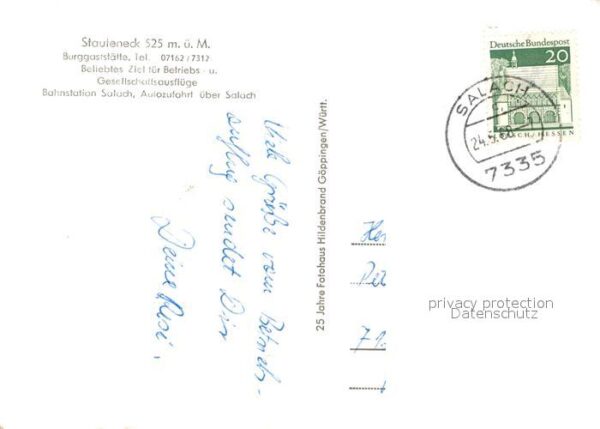 Staufeneck 525 m. ü. M.
Burggaststätte, Tel. 07162/7312
Beliebtes Ziel für Betriebs- u.
Gesellschaftsausflüge
Bahnstation Salach, Autozufahrt über Salach
Viele Grüße vom Betriebs-
ausflug sendet Dir
Deine Rosi.
25 Jahre Fotohaus Hildenbrand Göppingen/Württ.
Deutsche Bundespost
20
LORSCH/HESSEN
SALACH
24.5.68
7335
privacy protection
Datenschutz